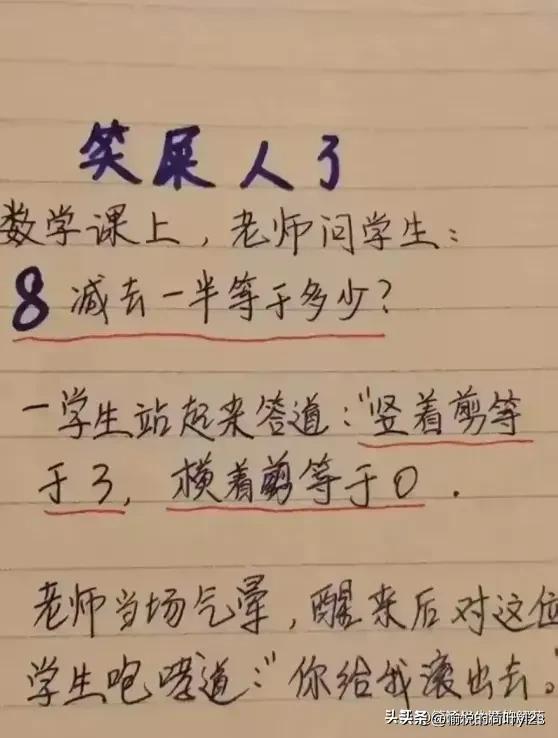 笑屎人了
数学课上，老师问学生：
8 减去一半等于多少？
一学生站起来答道：“竖着剪等
于3，横着剪等于0.
老师当场气晕，醒来后对这位
学生咆哮道：“你给我滚出去。”
头条 @愉悦的荷叶yI23